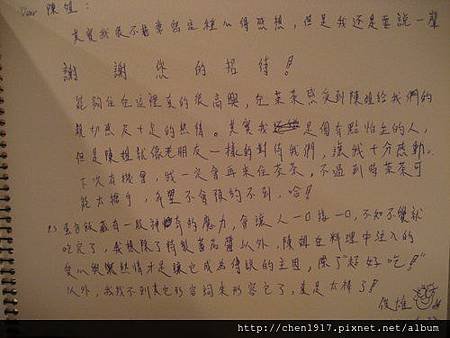 Dear 陳姐:
其實我很不擅常寫這種心得感想,但是我还是要說一聲
謝謝您的招待!
能夠住在這裡真的很高興,在茶茶感受到陳姐給我們的
親切感及十足的熱情。其實我是個有點怕生的人,
但是陳姐就像老朋友一樣的對待我們,讓我十分感動。
下次有機會,我一定會再來住茶茶,不過到時茶茶可
能太搶手,希望不會預約不到,哈!
P.S 蛋有一股神奇的魔力,會讓人一口接一口,不知不覺就
吃完了,我想除了特製蕃茄醬以外,陳姐在料理中注入的
愛心與熱情才是讓它成為傳說的主因,除了"超好吃!"
以外,我找不到其它形容詞來形容它了,真是太棒了!
俊雄
http://chen1917.pixnet.net/album